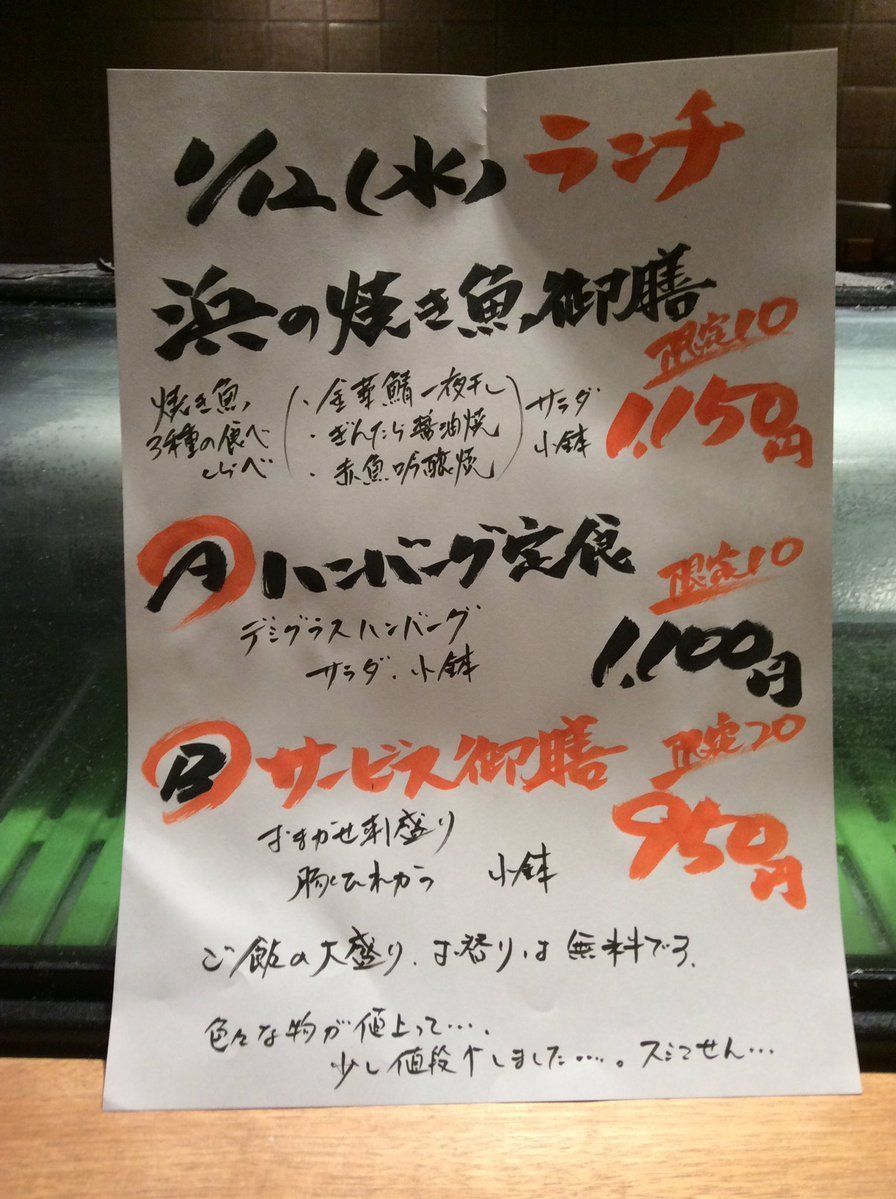 1/12(水) ランチ
浜の焼き魚御膳
限定10
焼き魚、
3種の食べ
くらべ
・金華鯖一夜干し
・ぎんたら醤油焼
・赤魚吟醸焼
サラダ
小鉢
1,150円
A ハンバーグ定食
限定10
デミグラスハンバーグ
サラダ、小鉢
1,100円
B サービス御膳
限定20
おまかせ刺盛り
小鉢
950円
ご飯の大盛り、お替りは無料です、
色々な物が値上って…、
少し値段↑しました…。スミマせん…